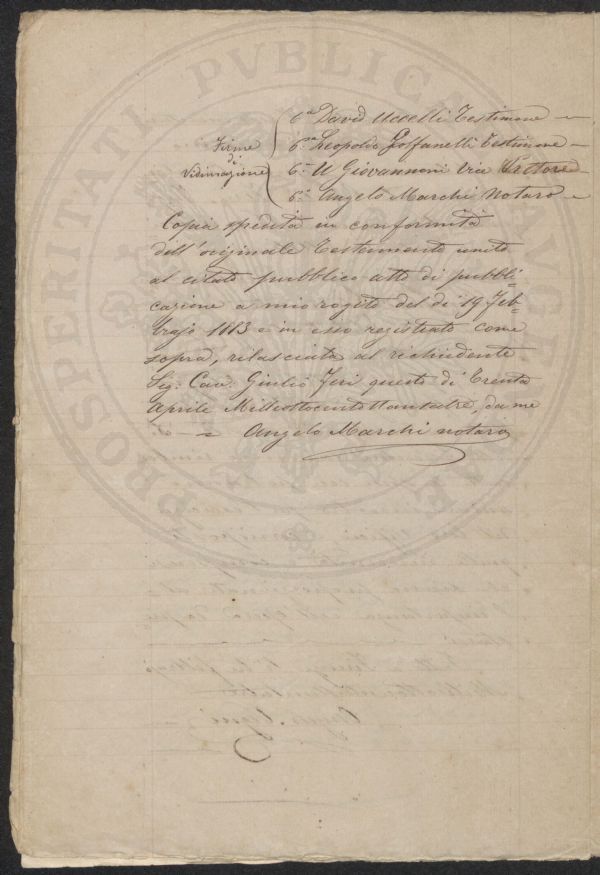 PROSPERITATI PVBLICAE AVGENDAE
Firme
di
Vidimazione
6.a David Uccelli Testimone
6.a Leopoldo Goffanelli Testimone
6.o U Giovannoni Vice Pretore
6.o Angelo Marchi Notaro
Copia spedita in conformità
dell'originale Testamento unito
al citato pubblico atto di pubbli=
cazione a mio rogito del dì 19 Feb=
brajo 1883 e in esso registrato come
sopra, rilasciata al richiedente
Sig: Cav: Giulio Jeri questo dì Trenta
Aprile Milleottocentottantadre, da me
Angelo Marchi notaro